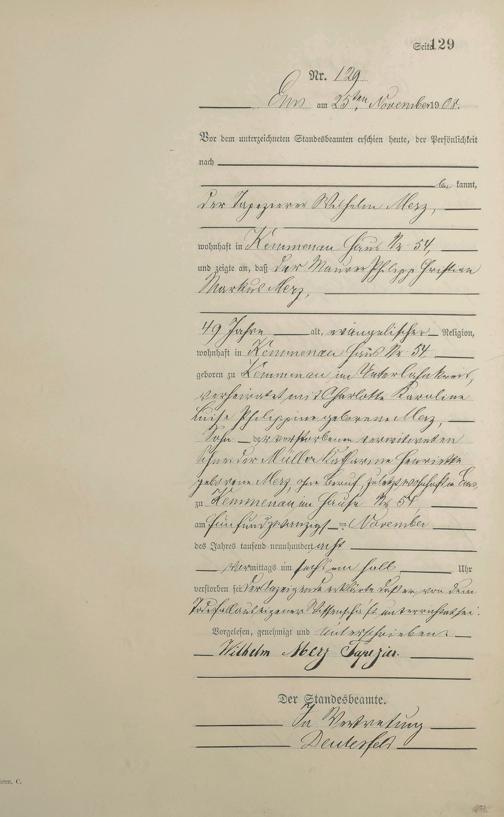 Seite 129
Nr. 129
Ems am 25ten November 1908.
Vor dem unterzeichneten Standesbeamten erschien heute, der Persönlichkeit
nach
be kannt,
der Tapezierer Wilhelm Merz,
wohnhaft in Kemmenau Haus Nr 54,
und zeigte an, daß der Maurer Philipp Christian
Markus Merz,
49 Jahre alt, evangelischer Religion,
wohnhaft in Kemmenau Haus Nr 54
geboren zu Kemmenau im Unterlahnkreis,
verheiratet mit Charlotte Karoline
Luise Philippine geborene Merz,
Sohn der verstorbenen verwitweten
Müller Katharine Henriette
geborene Merz, ohne Beruf, zuletzt wohnhaft in Ems
zu Kemmenau im Hause Nr 54
am fünfundzwanzigsten November
des Jahres tausend neunhundert acht
vormittags um sechs ein halb Uhr
verstorben sei. Der Anzeigende erklärte daß er von dem
Todesfall aus eigener Wissenschaft unterrichtet sei.
Vorgelesen, genehmigt und unterschrieben:
Wilhelm Merz Tapezier.
Der Standesbeamte.
In Vertretung